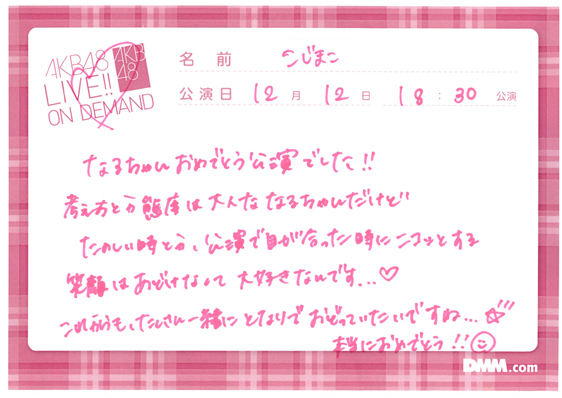 AKB48
LIVE!!
ON DEMAND
AKB
48
名前 こじまこ
公演日 12月 12日 18:30 公演
なるちゃんおめでとう公演でした!!
考え方とか態度は大人ななるちゃんだけど
たのしい時とか、公演で目が合った時にニコッとする
笑顔はあどけなくて大好きなんです...♡
これからも、たくさん一緒にとなりでおどっていたいですね...☆
本当におめでとう!!
DMM.com